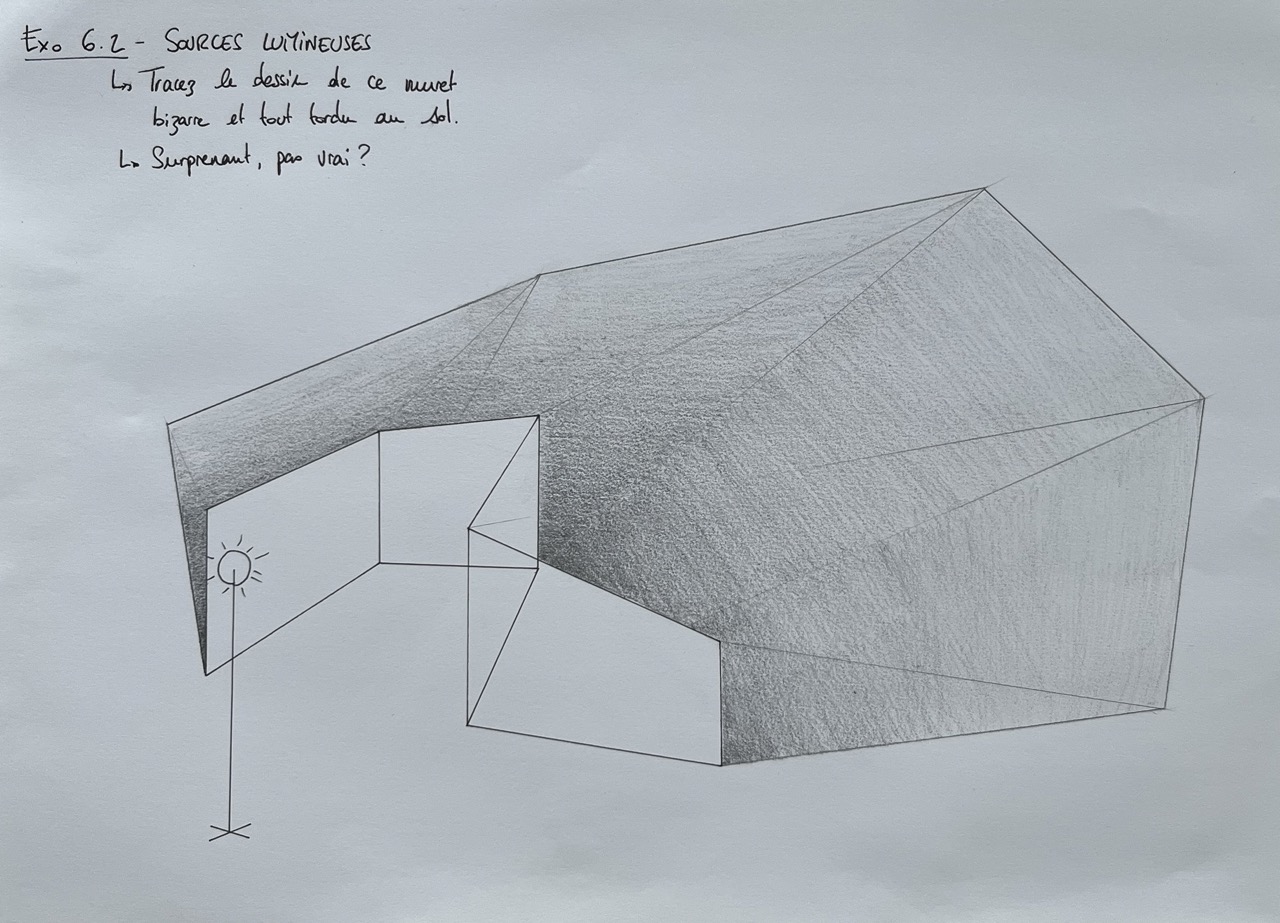 Exo 6.2 - SOURCES LUMINEUSES
↳ Tracez le dessin de ce muret
bizarre et tout tordu au sol.
↳ Surprenant, pas vrai ?